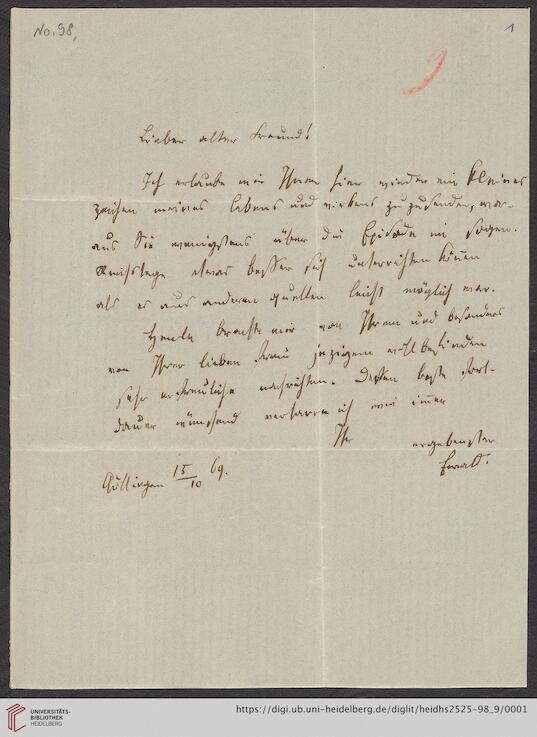 No. 98,
1
Lieber alter Freund!
Ich erlaube mir Ihnen hier wieder ein kleines
zeichen meines lebens und wirkens zuzusenden, wor-
aus Sie wenigstens über die Episode im sogen.
Reichstage etwas besser sich unterrichten können
als es aus anderen quellen leicht möglich war.
brachte mir von Ihrem und besonders
von Ihrer lieben Frau jezigem wohlbefinden
sehr erfreuliche nachrichten. Dessen beste fort-
dauer wünschend verharre ich wie immer
Ihr ergebenster
Ewald.
Göttingen 15/10 69.
UNIVERSITÄTS-
BIBLIOTHEK
HEIDELBERG
https://digi.ub.uni-heidelberg.de/diglit/heidhs2525-98_9/0001